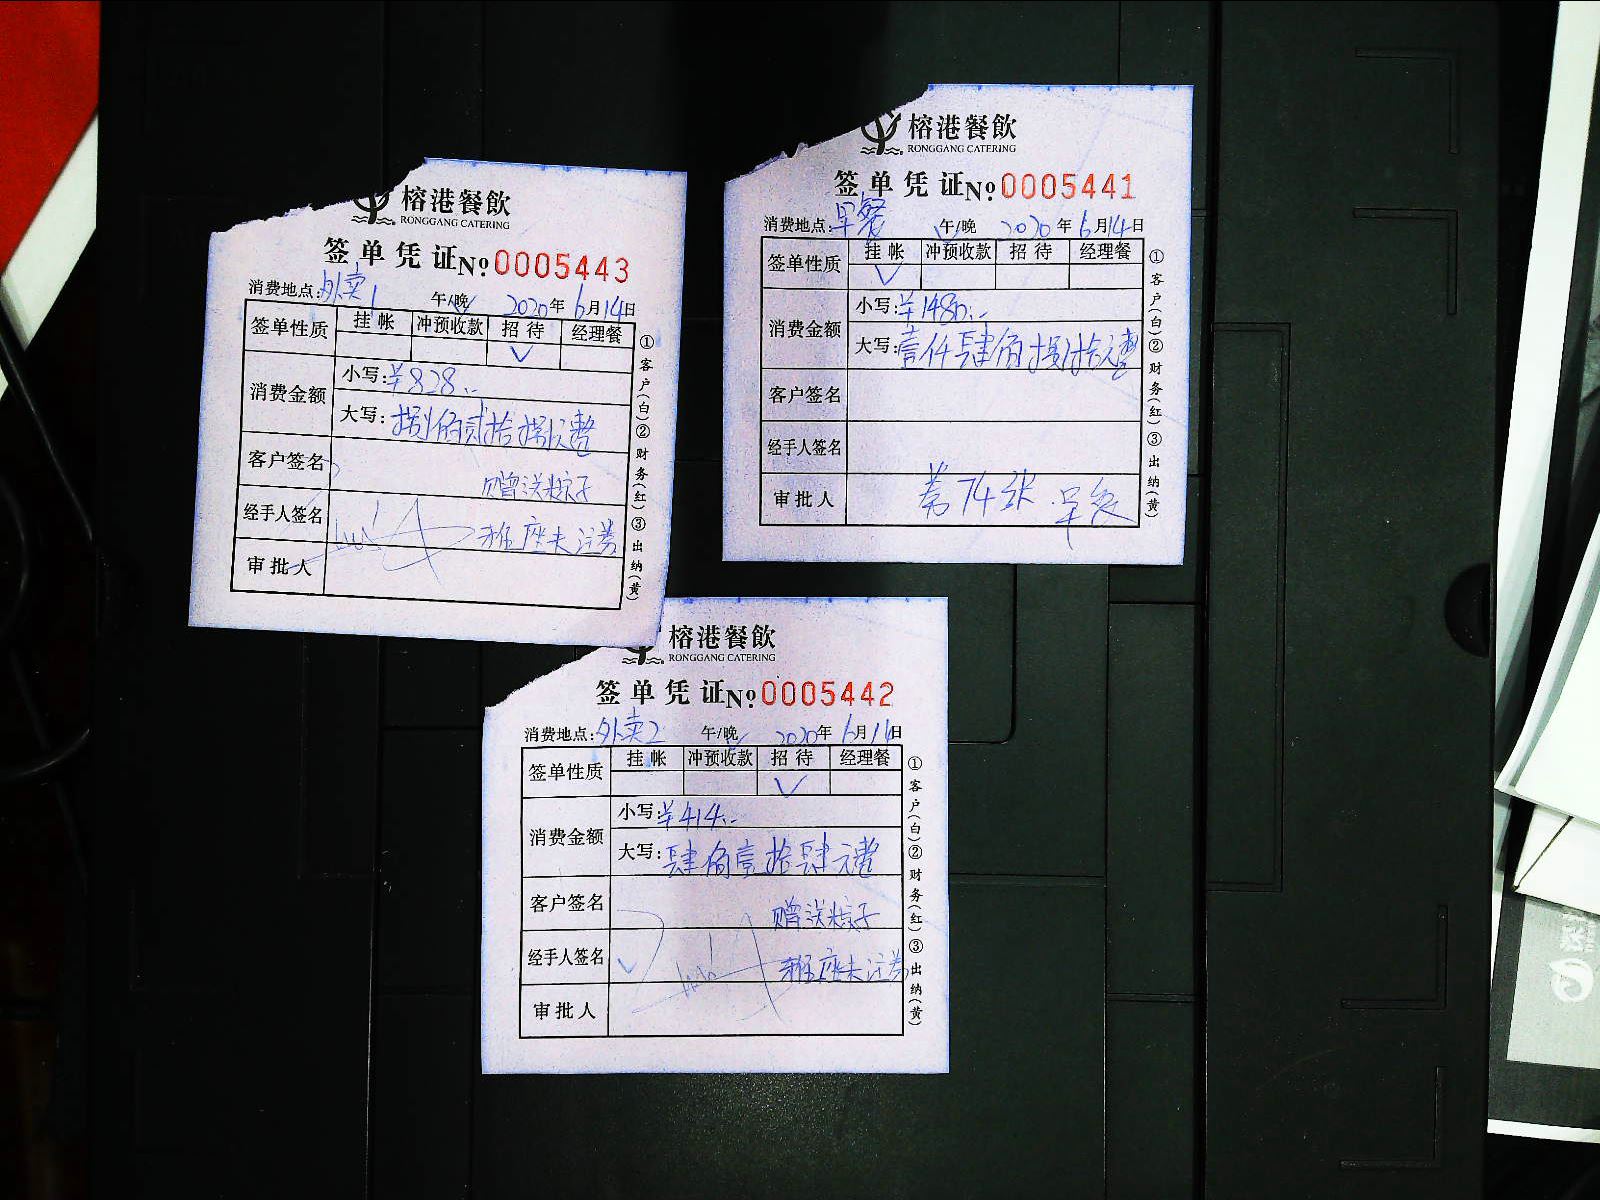 榕港餐飲
RONGGANG CATERING
签单凭证 No 0005443
消费地点:外卖1 午/晚 2020年6月14日
签单性质 挂帐 冲预收款 招待 经理餐
消费金额 小写:¥828.-
大写:捌佰贰拾捌元整
客户签名
赠送粽子
经手人签名
审批人
①客户(白)②财务(红)③出纳(黄)
榕港餐飲
RONGGANG CATERING
签单凭证 No 0005441
消费地点:早餐 午/晚 2020年6月14日
签单性质 挂帐 冲预收款 招待 经理餐
消费金额 小写:¥1480.-
大写:壹仟肆佰捌拾元整
客户签名
经手人签名
审批人 第74张
①客户(白)②财务(红)③出纳(黄)
榕港餐飲
RONGGANG CATERING
签单凭证 No 0005442
消费地点:外卖2 午/晚 2020年6月14日
签单性质 挂帐 冲预收款 招待 经理餐
消费金额 小写:¥414.-
大写:肆佰壹拾肆元整
客户签名
赠送粽子
经手人签名
审批人
①客户(白)②财务(红)③出纳(黄)